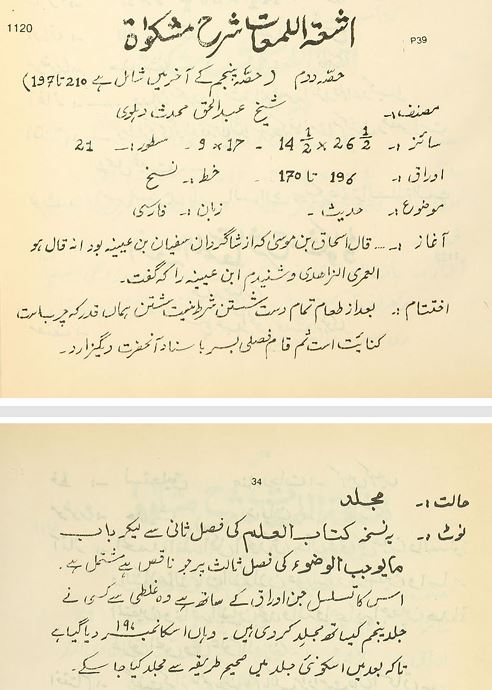 1120
P39
اشعۃ اللمعات شرح مشکواۃ
حصّہ دوم (حصّہ پنجم کے آخر میں شامل ہے 210 تا 197)
مصنف:۔ شیخ عبدالحق محدث دہلوی
سائز:۔ 26 1/2 x 14 1/2 ۔ 17 x 9 ۔ سطور:۔ 21
اوراق:۔ 196 تا 170 ۔ خط:۔ نسخ
موضوع:۔ حدیث ۔ زبان:۔ فارسی
آغاز:۔ .... قال اسحاق بن موسیٰ کہ از شاگردان سفیان بن عیینہ بود انہ قال ہو
العمری الزاھدی و شنیدم ابن عیینہ را کہ گفت۔
اختتام:۔ بعد از طعام تمام دست شستن شرط نیست شستن ہماں قدر کہ چرب است
کفایت است ثم قام فصلی بسر با سناد آنحضرت دیگزارد۔
34
حالت:۔ مجلد
نوٹ:۔ یہ نسخہ کتاب العلم کی فصل ثانی سے لیکر باب
مایوجب الوضوء کی فصل ثالث پر جو ناقص ہے مشتمل ہے۔
اسس کا تسلسل جن اوراق کے ساتھ ہے وہ غلطی سے کسی نے
جلد پنجم کیساتھ مجلد کردی ہیں۔ وہاں اسکا نمبر 197 دیا گیا ہے
تاکہ بعد میں اسکو نئی جلد میں صحیح طریقہ سے مجلد کیا جا سکے۔